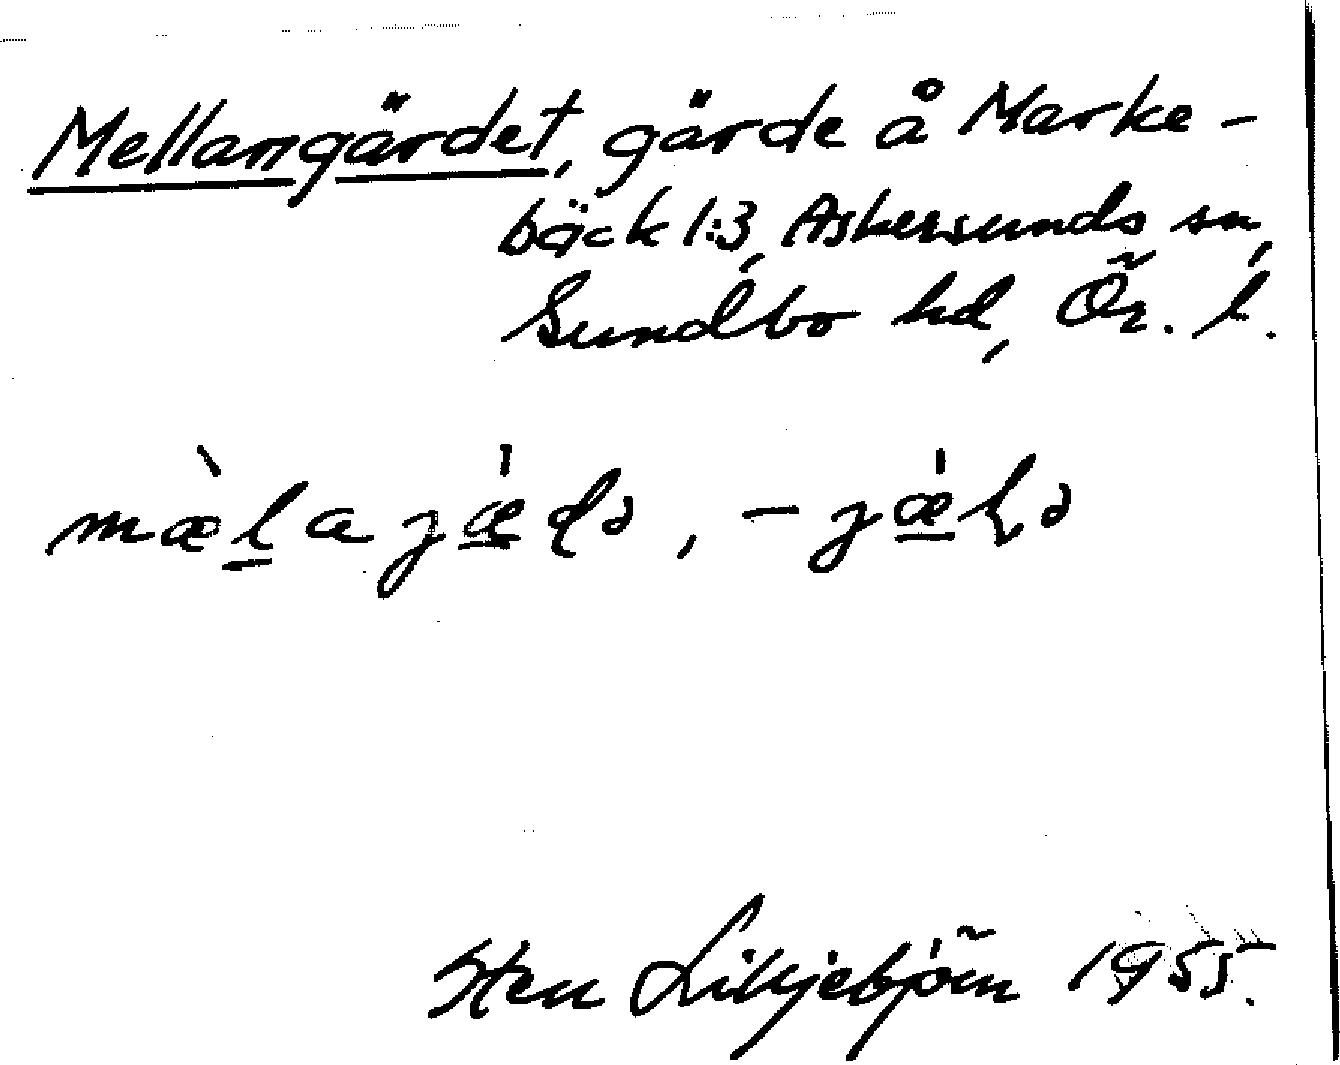 Mellangärdet, gärde å Marke-
bäck 1:3, Askersunds sn,
Sundbo hd, Ör. l.
Sten Liljebjörn 1955.